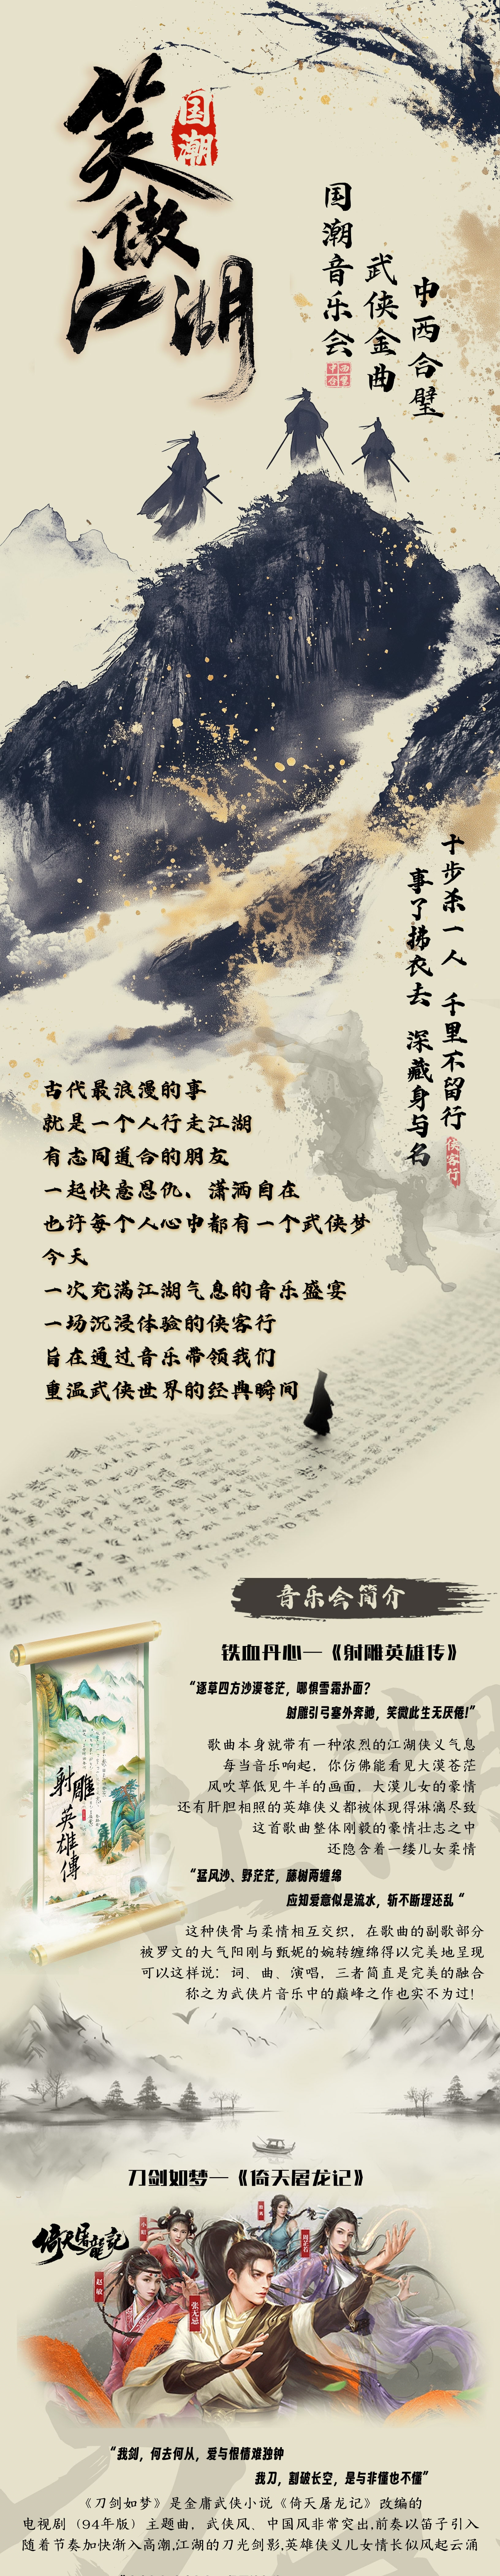 笑傲江湖
国潮
国潮音乐会
武侠金曲
中西合璧
十步杀一人 千里不留行
事了拂衣去 深藏身与名
侠客行
古代最浪漫的事
就是一个人行走江湖
有志同道合的朋友
一起快意恩仇、潇洒自在
也许每个人心中都有一个武侠梦
今天
一次充满江湖气息的音乐盛宴
一场沉浸体验的侠客行
旨在通过音乐带领我们
重温武侠世界的经典瞬间
音乐会简介
铁血丹心—《射雕英雄传》
“逐草四方沙漠苍茫，哪惧雪霜扑面？
射雕引弓塞外奔驰，笑微此生无厌倦!”
歌曲本身就带有一种浓烈的江湖侠义气息
每当音乐响起，你仿佛能看见大漠苍茫
风吹草低见牛羊的画面，大漠儿女的豪情
还有肝胆相照的英雄侠义都被体现得淋漓尽致
这首歌曲整体刚毅的豪情壮志之中
还隐含着一缕儿女柔情
射雕英雄傳
“猛风沙、野茫茫，藤树两缠绵
应知爱意似是流水，斩不断理还乱“
这种侠骨与柔情相互交织，在歌曲的副歌部分
被罗文的大气阳刚与甄妮的婉转缠绵得以完美地呈现
可以这样说：词、曲、演唱，三者简直是完美的融合
称之为武侠片音乐中的巅峰之作也实不为过!
刀剑如梦—《倚天屠龙记》
倚天屠龍記
小昭
周芷若
赵敏
张无忌
“我剑，何去何从，爱与恨情难独钟
我刀，割破长空，是与非懂也不懂”
《刀剑如梦》是金庸武侠小说《倚天屠龙记》改编的
电视剧（94年版）主题曲，武侠风、中国风非常突出,前奏以笛子引入
随着节奏加快渐入高潮,江湖的刀光剑影,英雄侠义儿女情长似风起云涌